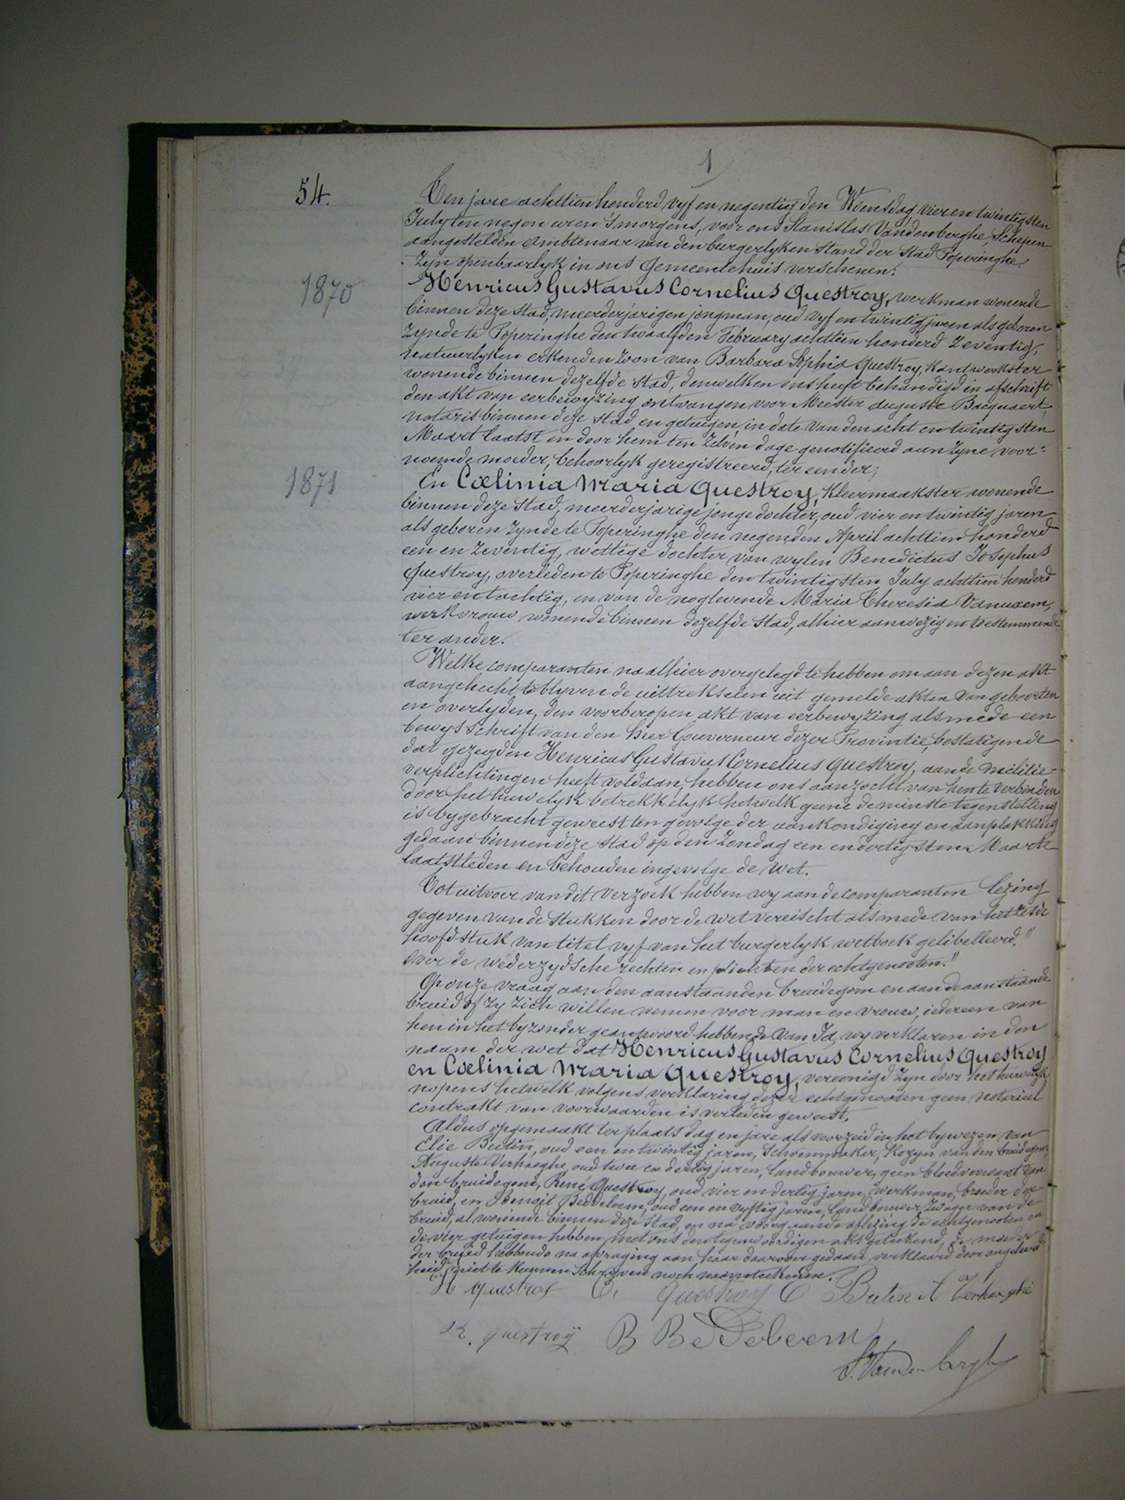 1
54.
Een jare achttien honderd vyf en negentig den Woensdag vier en twintigsten
July ten negen uren 's morgens, voor ons Stanislas Vandenberghe, Schepen
aangestelden ambtenaar van den burgerlyken stand der Stad Poperinghe,
zyn openbaarlyk in ons Gemeentehuis verschenen:
1870
Henricus Gustavus Cornelius Questroy, werkman wonende
binnen deze stad, meerderjarigen jongman, oud vyf en twintig jaren als geboren
zynde te Poperinghe den twaalfden February achttien honderd zeventig,
natuurlyken erkenden zoon van Barbara Sophia Questroy, kantwerkster
wonende binnen dezelfde stad, denwelken ons heeft behandigd in afschrift
den akt van eerbewyzing ontvangen voor Meester Auguste Bacquaert,
notaris binnen deze stad en getuigen, in date van den acht en twintigsten
Maart laatst en door hem ten zelven dage genotifieerd aan zyne voor-
noemde moeder, behoorlyk geregistreerd, ter eender;
1871
En Cœlinia Maria Questroy, Kleermaakster wonende
binnen deze stad, meerderjarige jonge dochter, oud vier en twintig jaren
als geboren zynde te Poperinghe den negenden April achttien honderd
een en zeventig, wettige dochter van wylen Benedictus Josephus
Questroy, overleden te Poperinghe den twintigsten July achttien honderd
vier en tachtig, en van de noglevende Maria Theresia Vanuxem,
werkvrouw wonende binnen dezelfde stad, alhier aanwezig en toestemmende
ter ander.
Welke comparanten na alhier overgelegd te hebben om aan dezen akt
aangehecht te blyven de uittrekselen uit gemelde akten van geboorten
en overlyden, den voorberopen akt van eerbewyzing alsmede een
bewysschrift van den heer Gouverneur dezer Provintie, bestatigende
dat gezegden Henricus Gustavus Cornelius Questroy, aan de militie
verplichtingen heeft voldaan, hebben ons aanzocht van hen te verbinden
door het huwelyk betrekkelyk hetwelk geene de minste tegenstelling
is bygebracht geweest ten gevolge der aankondiging en aanplakking
gedaan binnen deze stad op den Zondag een en dertigsten Maarte
laatstleden en behouden ingevolge de wet.
Tot uitvoer van dit verzoek hebben wy aan de comparanten lezing
gegeven van de stukken door de wet vereischt alsmede van het zesde
hoofdstuk van titel vyf van het burgerlyk wetboek gelibelleerd,"
Over de wederzydsche rechten en plichten der echtgenooten."
Op onze vraag aan den aanstaanden bruidegom en aan de aanstaande
bruid of zy zich willen nemen voor man en vrouw, iedereen van
hen in het byzonder geantwoord hebbende van Ja, wy verklaren in den
naam der wet dat Henricus Gustavus Cornelius Questroy
en Cœlinia Maria Questroy, vereenigd zyn door het huwelyk
nopens hetwelk volgens verklaring dezer echtgenooten geen notarieel
contrakt van voorwaarden is verleden geweest.
Aldus opgemaakt ter plaats dag en jare als voorzeid in het bywezen van
Elie Beutin, oud een en twintig jaren, Schoenmaker, Kozyn van den bruidegom,
Auguste Verhaeghe, oud twee en dertig jaren, landbouwer, geen bloedverwant van
den bruidegom, René Questroy, oud vier en dertig jaren, werkman, broeder der
bruid, en Bedeleem, oud een en vyftig jaren, landbouwer, Zwager van de
bruid, al wonende binnen deze stad, en na voorgaande aflezing de echtgenooten en
de vier getuigen hebben met ons den tegenwoordigen akt geteekend, de moeder
der bruid hebbende na afvraging aan haar daarover gedaan, verklaard door ongeleerd-
heid, niet te kunnen schryven noch naamteekenen.
H Questroy C. Questroy E Beutin A Verhaeghe
R. Questroÿ B Bedeleem
S. Vandenberghe